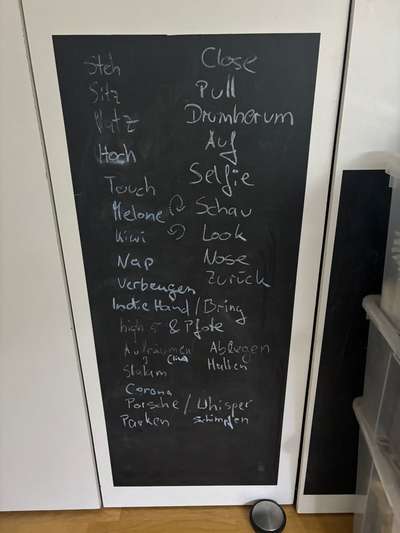 Steh Close
Sitz Pull
Platz Drumherum
Hoch Auf
Touch Selfie
Melone Schau
Kiwi Look
Nap Nose
Verbeugen Zurück
In die Hand / Bring
high 5 & Pfote
Aufräumen Ablegen
Slalom Halten
Corona
Porsche / Whisper
Parken Schimpfen